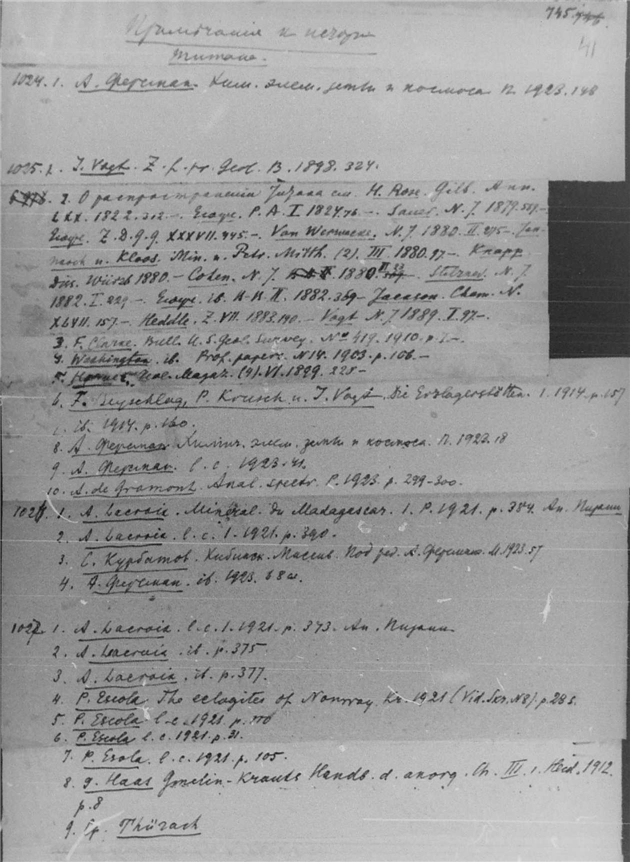 745
41
Примечанія к исторіи
титана.
1024. 1. А. Ферсман. Хим. элем. земли и космоса П. 1923. 148
1025. 1. J. Vogt. Z. f. pr. Geol. B. 1898. 324.
2. О распространеніи см. H. Rose. Gilb. Ann.
LXX. 1822. 312.— P. A. I. 1824. 76.— Sauer. N. J. 1879.
Z. D. g. g. XXXVII. 445.— Van Werweke. N. J. 1880. II.
u. Kloos. Min. u. Petr. Mitth. (2). III. 1880. 97.— Knapp
Dis. Würzb 1880.— Cohen. N. J. 1880 Stelzner. N. J.
1882. I. 229.— ib. II. 1882. 369— Jackson. Chem. N.
XLVII. 157.— Heddle. Z. VII. 1883. 190.— Vogt N. J. 1889. I. 97.—
3. F. Clarke. Bull. U. S. Geol. Survey. No 419. 1910. p. 7.—
4. Washington. ib. Prof. papers. N 14. 1903. p. 106.—
5. Magaz. (2). VI. 1829. 228—
6. F. Beyschlag, P. Krusch u. J. Vogt. Die Erzlagerstätten. 1. 1914. p. 157
7. ib. 1914. p. 160.
8. А. Ферсман. Химич. элем. земли и космоса. П. 1923. 18
9. А. Ферсман. l. c. 1923. 41.
10. A. de Gramont. Anal. spectr. P. 1923. p. 299-300.
1. A. Lacroix. Minéral. du Madagascar. 1. P. 1921. p. 384. Ан. Пизани
2. A. Lacroix. l. c. 1. 1921. p. 390.
3. С. Курбатов. Хибинск. Массив. Под ред. А. Ферсмана. 1923. 57
4. А. Ферсман. ib. 1923. 68
1027. 1. A. Lacroix. l. c. 1. 1921. p. 373. Ан. Пизани.
2. A. Lacroix. ib. p. 375.
3. A. Lacroix. ib. p. 377.
4. P. Escola. The eclogites of Norway. Kr. 1921 (Vid. Skr. N8). p. 28
5. P. Escola l. c. 1921. p. 110
6. P. Escola l. c. 1921. p. 31.
7. P. Esola. l. c. 1921. p. 105.
8. J. Haas Gmelin-Krauts Handb. d. anorg. Ch. III. 1. Heid. 1912.
p. 8
9. Ср. Thürach